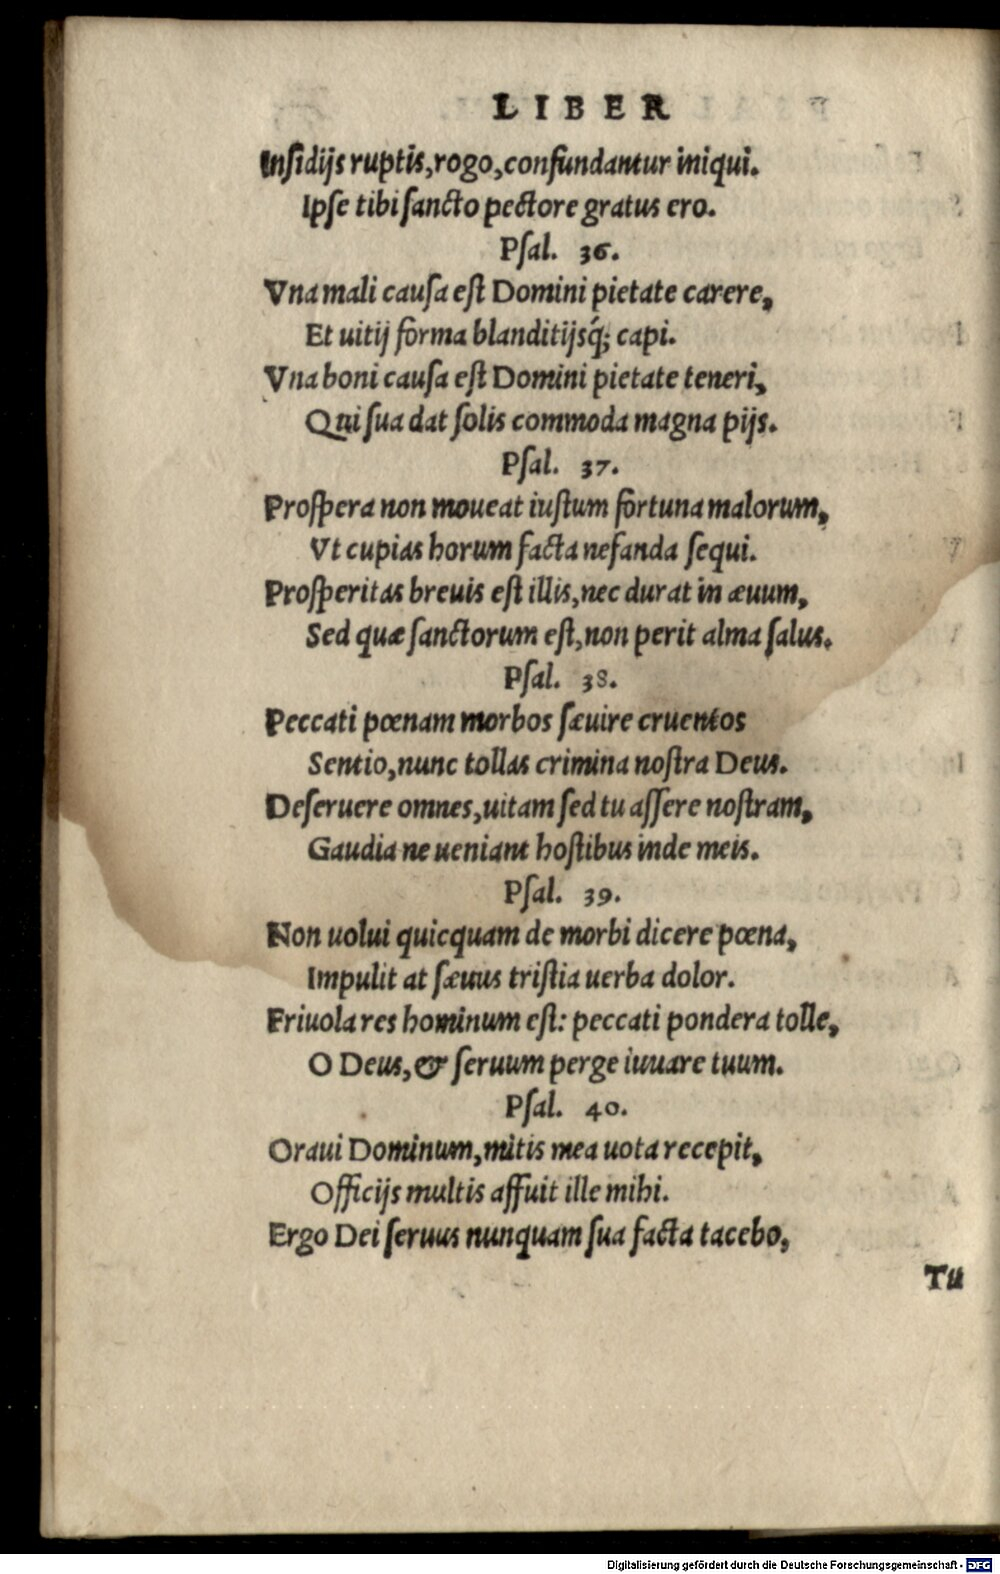 LIBER
Insidijs ruptis, rogo, confundantur iniqui.
Ipse tibi sancto pectore gratus ero.
Psal. 36.
Vna mali causa est Domini pietate carere,
Et uitij forma blanditijsq́; capi.
Vna boni causa est Domini pietate teneri,
Qui sua dat solis commoda magna pijs.
Psal. 37.
Prospera non moueat iustum fortuna malorum,
Vt cupias horum facta nefanda sequi.
Prosperitas breuis est illis, nec durat in æuum,
Sed quæ sanctorum est, non perit alma salus.
Psal. 38.
Peccati pœnam morbos sæuire cruentos
Sentio, nunc tollas crimina nostra Deus.
Deseruere omnes, uitam sed tu assere nostram,
Gaudia ne ueniant hostibus inde meis.
Psal. 39.
Non uolui quicquam de morbi dicere pœna,
Impulit at sæuus tristia uerba dolor.
Friuola res hominum est: peccati pondera tolle,
O Deus, & seruum perge iuuare tuum.
Psal. 40.
Oraui Dominum, mitis mea uota recepit,
Officijs multis affuit ille mihi.
Ergo Dei seruus nunquam sua facta tacebo,
Tu
Digitalisierung gefördert durch die Deutsche Forschungsgemeinschaft - DFG